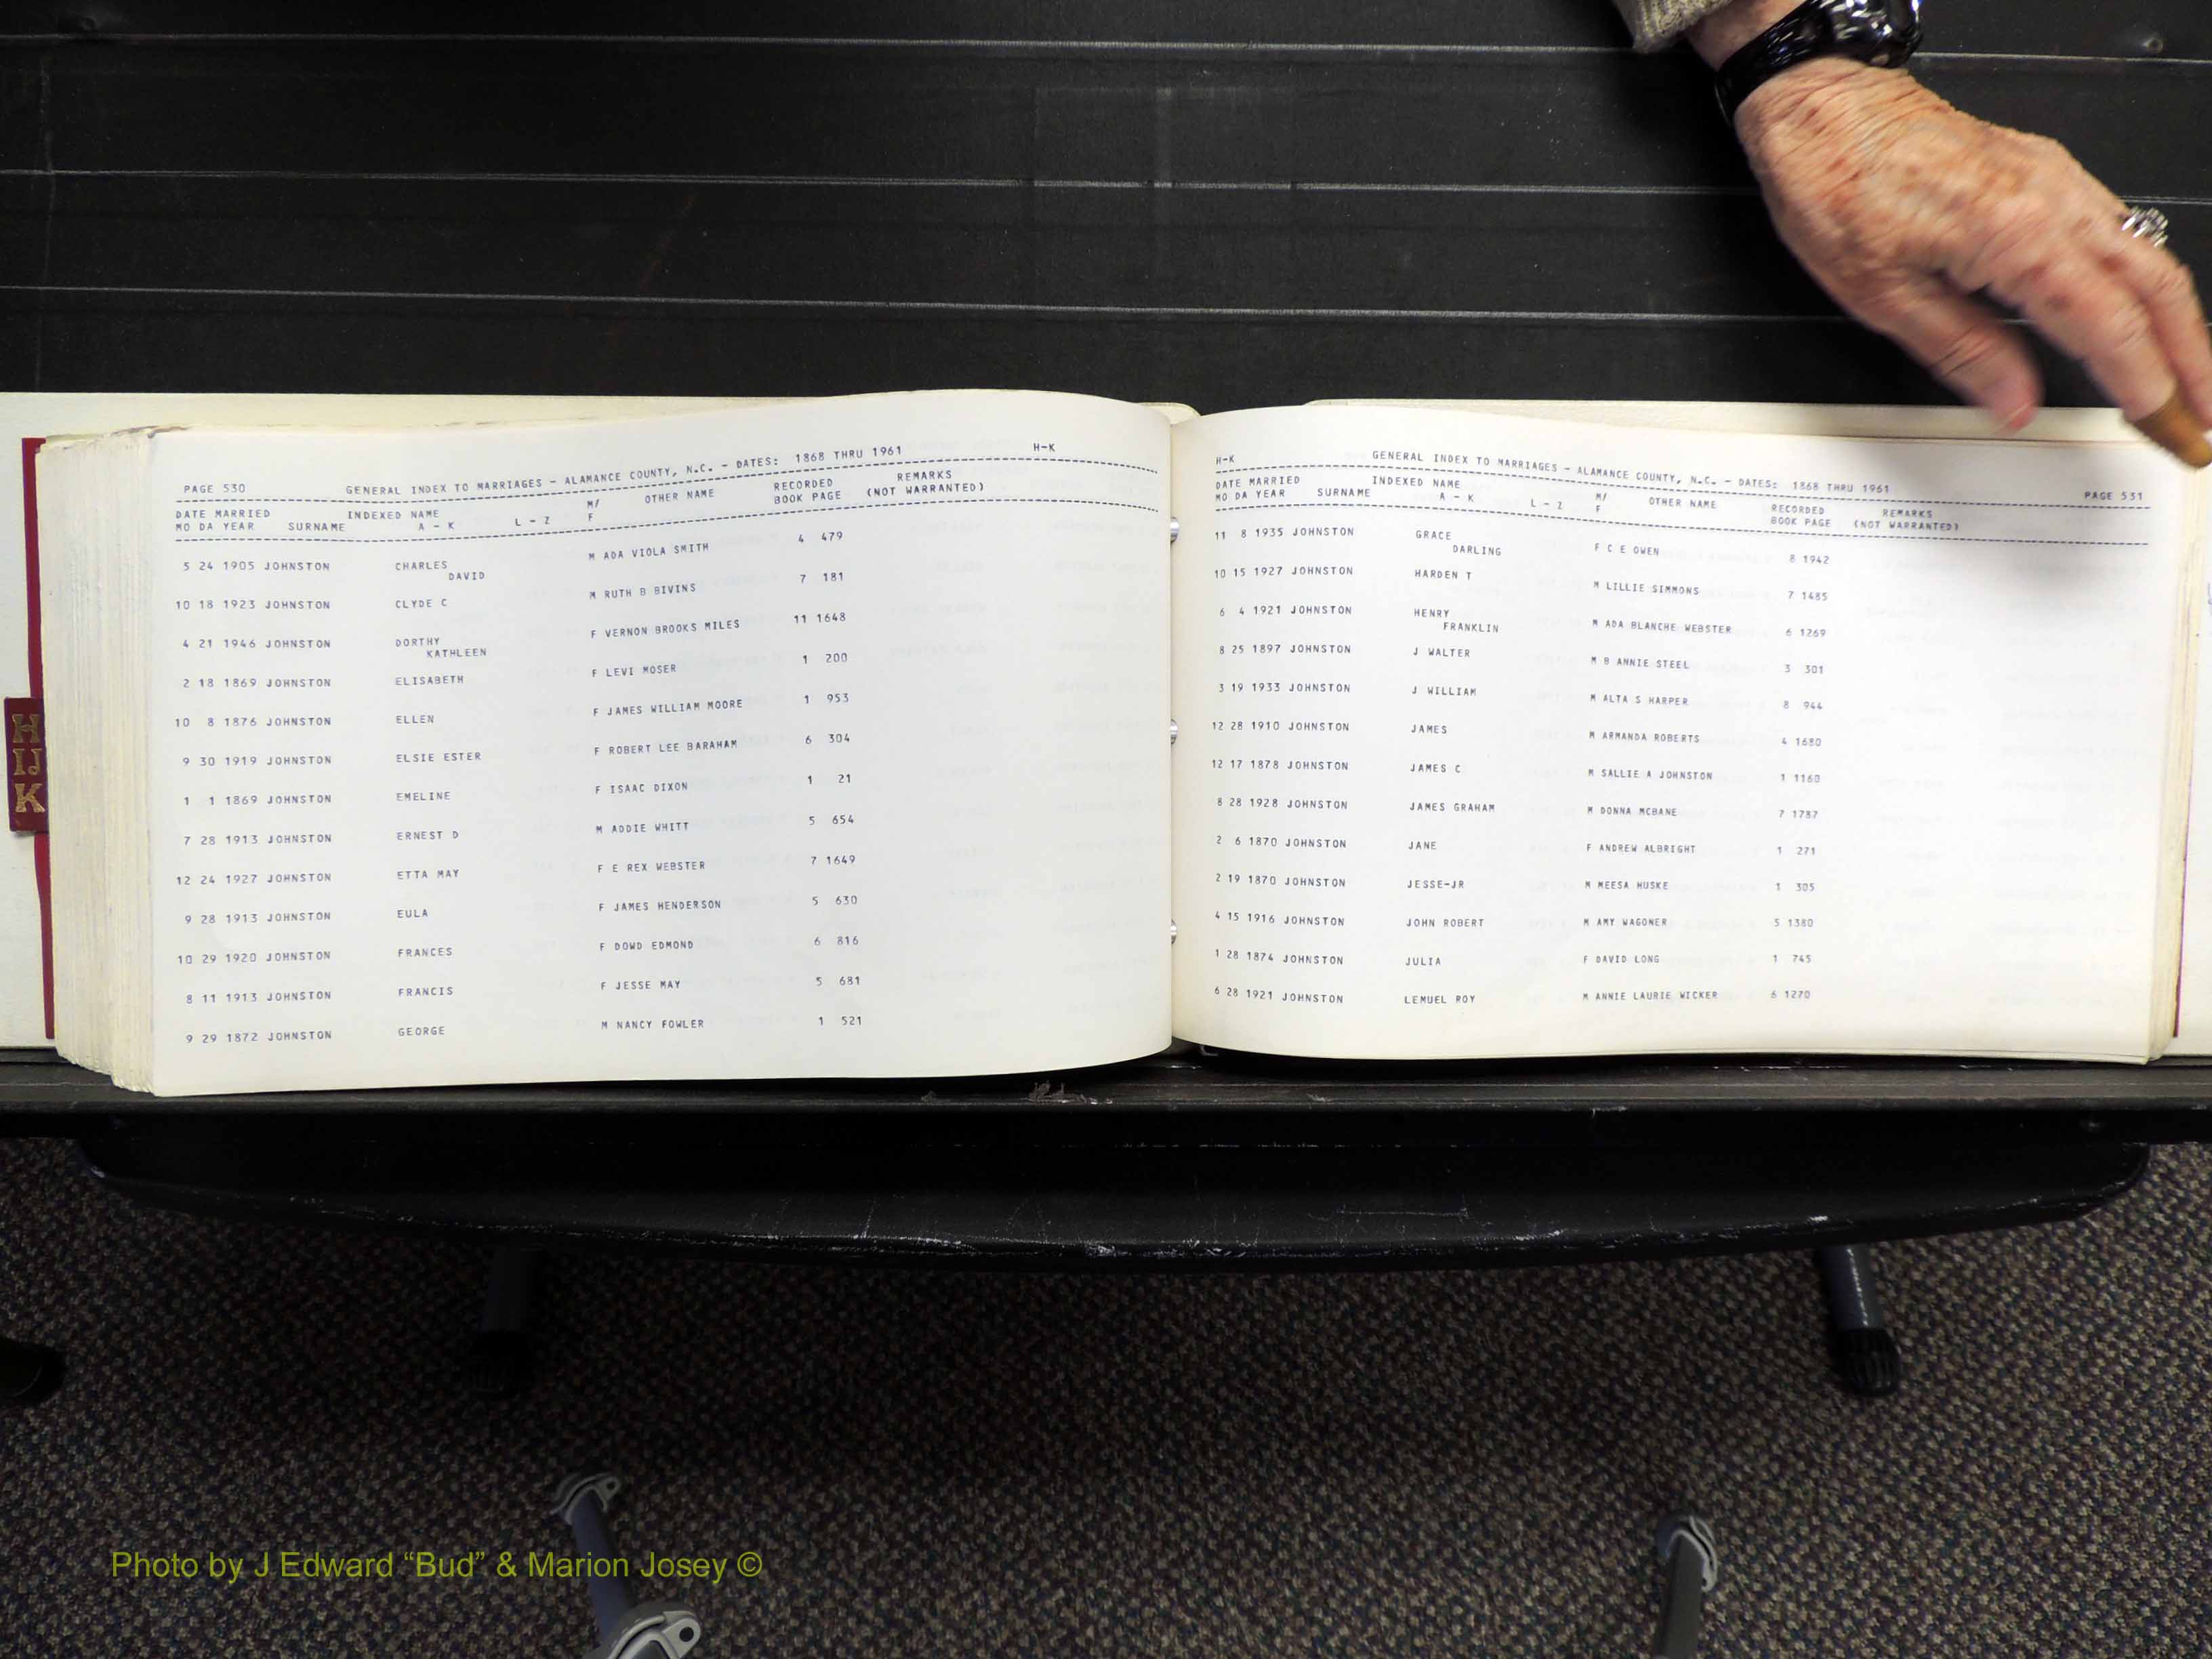 H
IJ
K
PAGE 530 GENERAL INDEX TO MARRIAGES - ALAMANCE COUNTY, N.C. - DATES: 1868 THRU 1961 H-K
DATE MARRIED INDEXED NAME M/ OTHER NAME RECORDED REMARKS
MO DA YEAR SURNAME A - K L - Z F BOOK PAGE (NOT WARRANTED)
5 24 1905 JOHNSTON CHARLES M ADA VIOLA SMITH 4 479
DAVID
10 18 1923 JOHNSTON CLYDE C M RUTH B BIVINS 7 181
4 21 1946 JOHNSTON DORTHY F VERNON BROOKS MILES 11 1648
KATHLEEN
2 18 1869 JOHNSTON ELISABETH F LEVI MOSER 1 200
10 8 1876 JOHNSTON ELLEN F JAMES WILLIAM MOORE 1 953
9 30 1919 JOHNSTON ELSIE ESTER F ROBERT LEE BARAHAM 6 304
1 1 1869 JOHNSTON EMELINE F ISAAC DIXON 1 21
7 28 1913 JOHNSTON ERNEST D M ADDIE WHITT 5 654
12 24 1927 JOHNSTON ETTA MAY F E REX WEBSTER 7 1649
9 28 1913 JOHNSTON EULA F JAMES HENDERSON 5 630
10 29 1920 JOHNSTON FRANCES F DOWD EDMOND 6 816
8 11 1913 JOHNSTON FRANCIS F JESSE MAY 5 681
9 29 1872 JOHNSTON GEORGE M NANCY FOWLER 1 521
H-K GENERAL INDEX TO MARRIAGES - ALAMANCE COUNTY, N.C. - DATES: 1868 THRU 1961 PAGE 531
DATE MARRIED INDEXED NAME M/ OTHER NAME RECORDED REMARKS
MO DA YEAR SURNAME A - K L - Z F BOOK PAGE (NOT WARRANTED)
11 8 1935 JOHNSTON GRACE F C E OWEN 8 1942
DARLING
10 15 1927 JOHNSTON HARDEN T M LILLIE SIMMONS 7 1485
6 4 1921 JOHNSTON HENRY M ADA BLANCHE WEBSTER 6 1269
FRANKLIN
8 25 1897 JOHNSTON J WALTER M B ANNIE STEEL 3 301
3 19 1933 JOHNSTON J WILLIAM M ALTA S HARPER 8 944
12 28 1910 JOHNSTON JAMES M ARMANDA ROBERTS 4 1680
12 17 1878 JOHNSTON JAMES C M SALLIE A JOHNSTON 1 1160
8 28 1928 JOHNSTON JAMES GRAHAM M DONNA MCBANE 7 1787
2 6 1870 JOHNSTON JANE F ANDREW ALBRIGHT 1 271
2 19 1870 JOHNSTON JESSE-JR M MEESA HUSKE 1 305
4 15 1916 JOHNSTON JOHN ROBERT M AMY WAGONER 5 1380
1 28 1874 JOHNSTON JULIA F DAVID LONG 1 745
6 28 1921 JOHNSTON LEMUEL ROY M ANNIE LAURIE WICKER 6 1270
Photo by J Edward “Bud” & Marion Josey ©